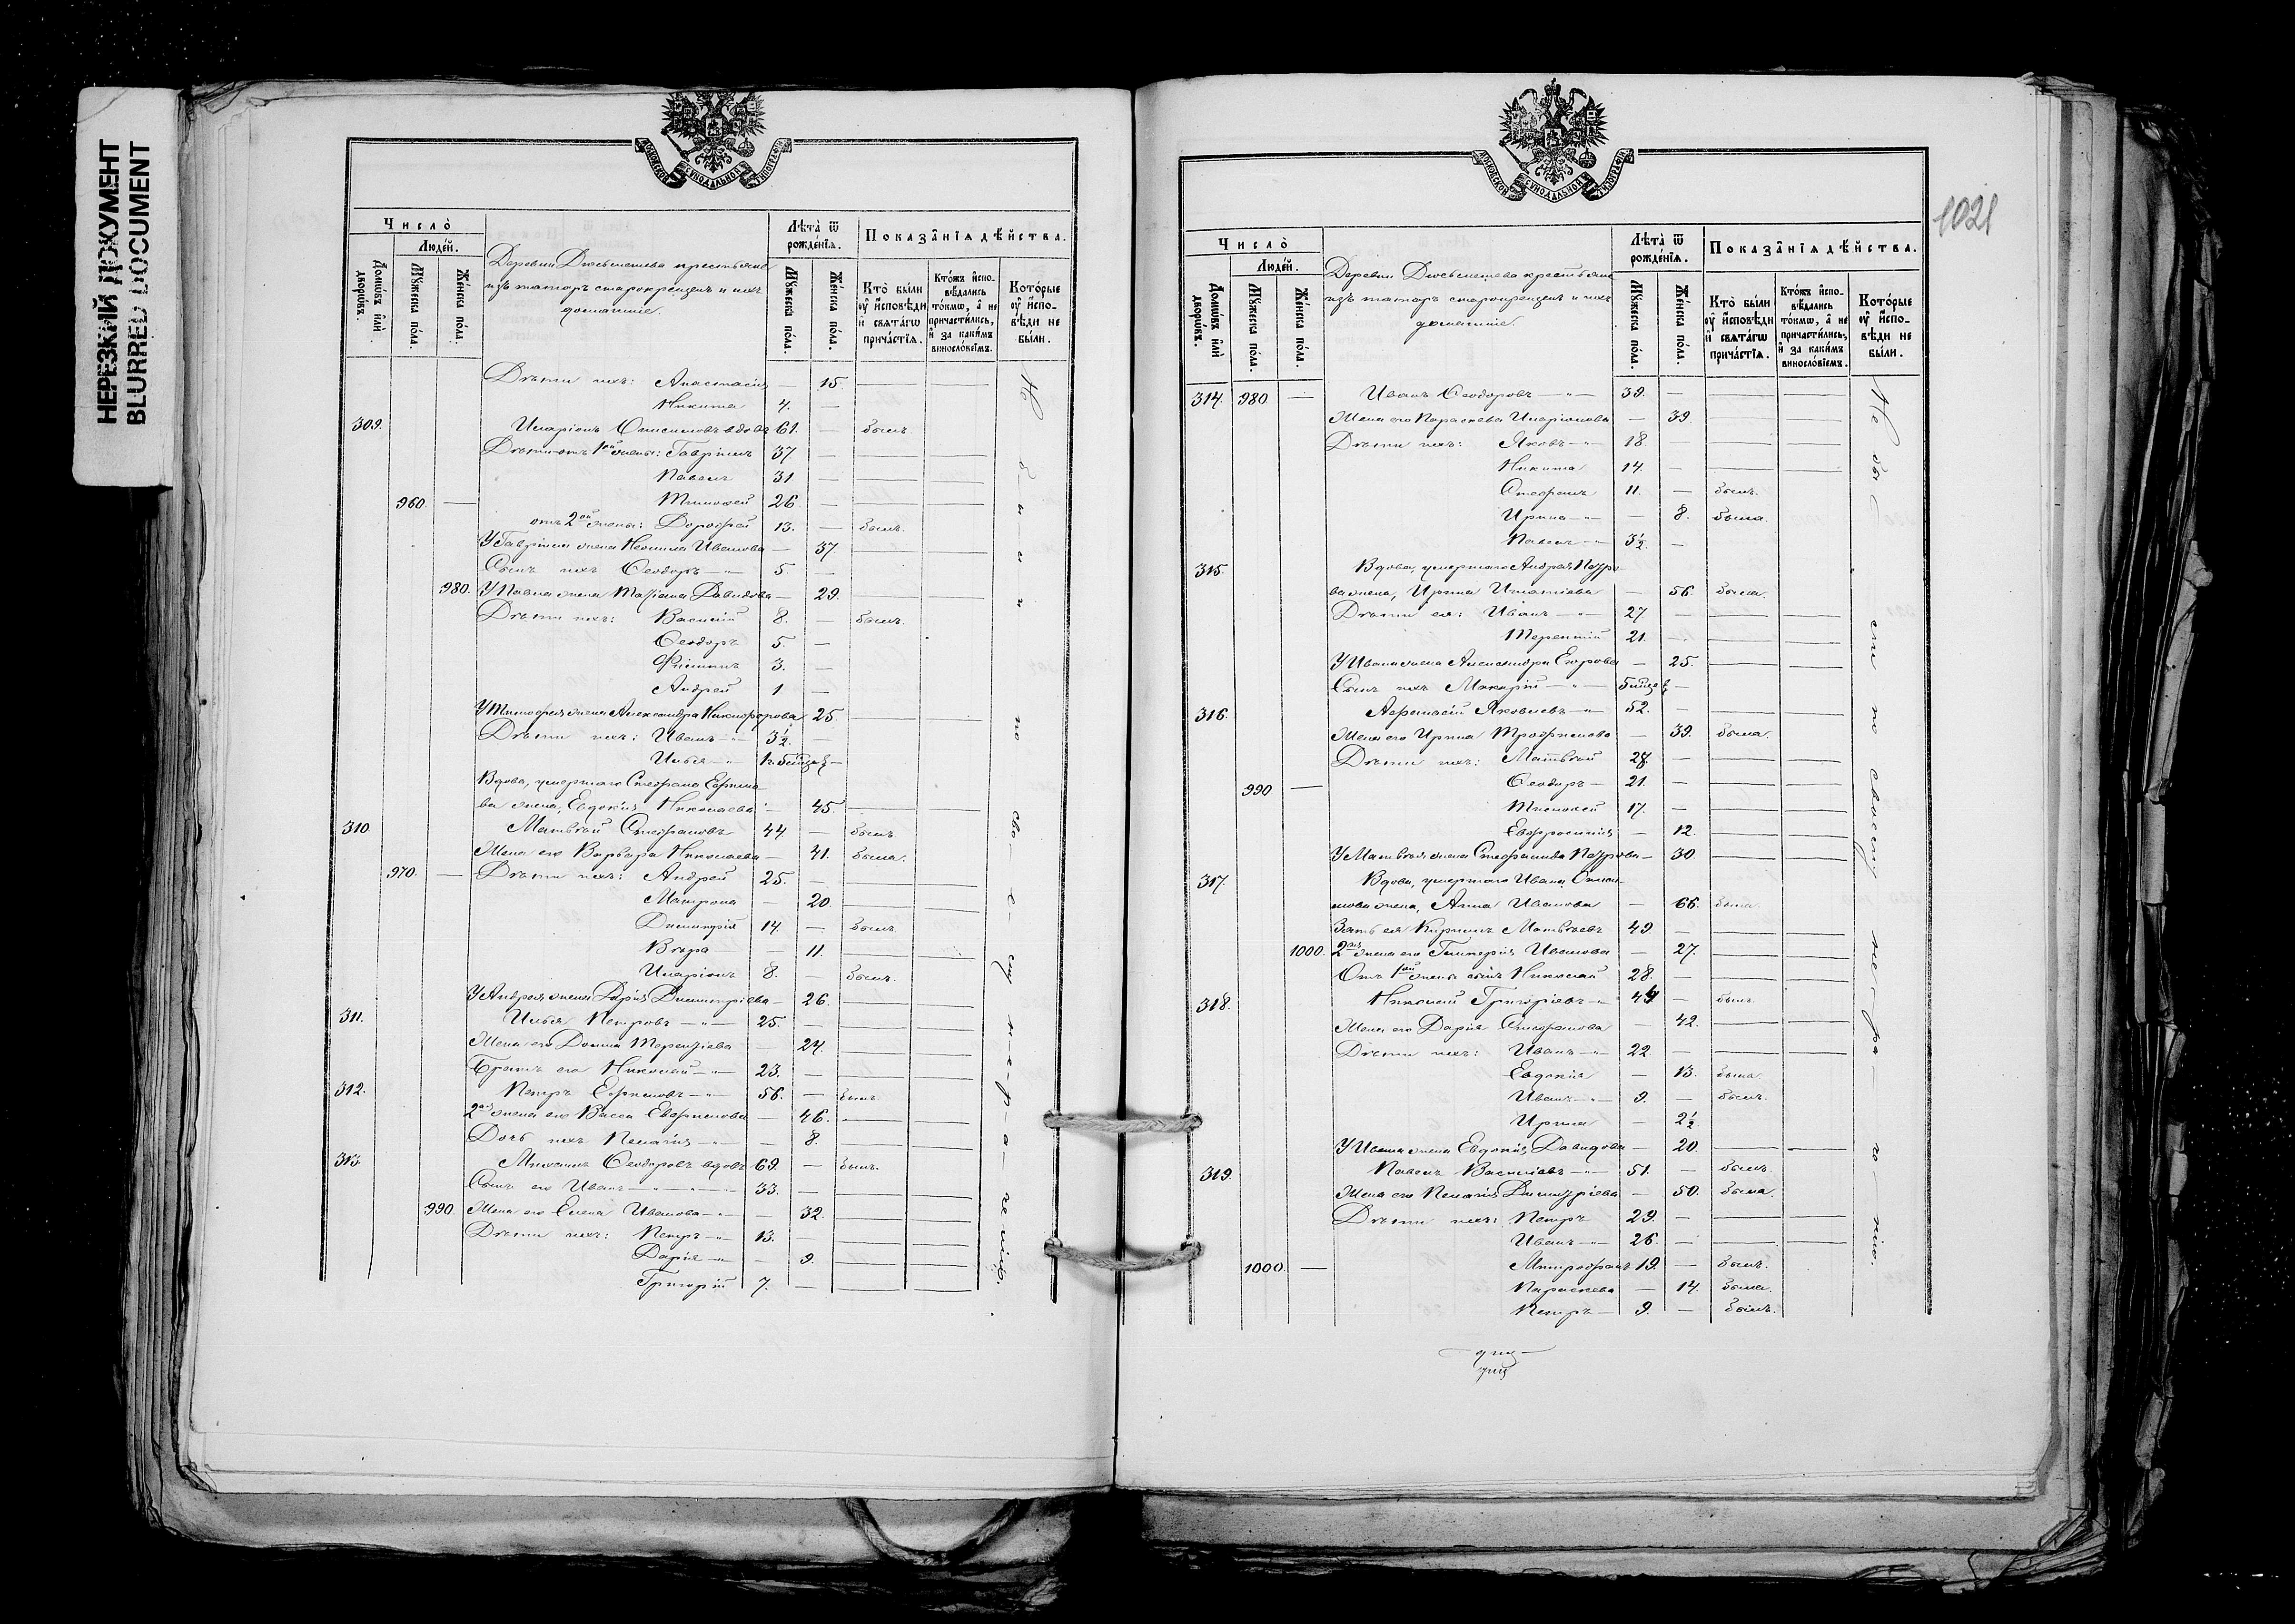 НЕРЕЗКИЙ ДОКУМЕНТ
BLURRED DOCUMENT
МОСКОВСКОЙ СѴНОДАЛЬНОЙ ТИПОГРАФІИ
Число̀
Людей.
Домѡвъ илѝ дворѡвъ.
Мꙋжеска пола.
Женска пола.
Деревни крестьяне
изъ татаръ старокрещенъ и ихъ
домашніе.
Лѣта̀ ѿ рожденїѧ.
Мꙋжеска пола.
Женска пола.
Показанїѧ дѣйства.
Кто̀ были оу҆ исповѣди и свѧтагѡ причастїѧ.
Ктожъ исповѣдались токмѡ, а не причастились, и за какимъ винословїемъ.
Которые оу҆ исповѣди не были.
Дѣти ихъ: Анастасія — 15.
Никита 4. —
309. Иларіонъ Онисимовъ вдовъ 61. — былъ.
Дѣти отъ 1ой жены: Гавріилъ 37 —
Павелъ 31 —
960. — Тимофей 26 —
отъ 2ой жены: Дорофей 13. — былъ.
У Гавріила жена Неонила Иванова — 37
Сынъ ихъ Ѳеодоръ 5. —
980. У Павла жена Татіана Давидова — 29.
Дѣти ихъ: Василій 8. — былъ.
Ѳеодоръ 5. —
Филиппъ 3. —
Андрей 1 —
У Тимофея жена Александра Никифорова 25.
Дѣти ихъ: Иванъ 3½. —
Илья
Вдова, умершаго Стефана
жена, Евдокія Николаева — 45.
310. Матвѣй Стефановъ 44. — былъ.
Жена его Варвара Николаева — 41. была.
970. — Дѣти ихъ: Андрей 25. —
Матрона — 20.
Димитрій 14. — былъ.
Вѣра — 11.
Иларіонъ 8. — былъ.
У Андрея жена Дарія Димитріева — 26.
311. Илья Петровъ 25. —
Жена его Домна Терентіева — 24.
Братъ его Николай 23. —
312. Петръ Ефимовъ 56. — былъ.
2ая жена его Васса — 46.
Дочь ихъ Пелагія — 8.
313. Михаилъ Ѳеодоровъ вдовъ 69. — былъ.
Сынъ его Иванъ 33. —
990. Жена его Елена Иванова — 32.
Дѣти ихъ: Петръ 13. —
Дарія — 9.
Григорій 7. —
Не были по своему нерадѣнію.
1021
МОСКОВСКОЙ СѴНОДАЛЬНОЙ ТИПОГРАФІИ
Число̀
Людей.
Домѡвъ илѝ дворѡвъ.
Мꙋжеска пола.
Женска пола.
Деревни крестьяне
изъ татаръ старокрещенъ и ихъ
домашніе.
Лѣта̀ ѿ рожденїѧ.
Мꙋжеска пола.
Женска пола.
Показанїѧ дѣйства.
Кто̀ были оу҆ исповѣди и свѧтагѡ причастїѧ.
Ктожъ исповѣдались токмѡ, а не причастились, и за какимъ винословїемъ.
Которые оу҆ исповѣди не были.
314. 980. — Иванъ Ѳеодоровъ 39. —
Жена его Параскева Иларіонова — 39.
Дѣти ихъ: Яковъ 18. —
Никита 14. —
Стефанъ 11. — былъ.
Ирина — 8. была.
Павелъ 3½. —
315. Вдова, умершаго Андрея Петро
ва жена, Ирина Игнатіева — 56. была.
Дѣти ея: Иванъ 27. —
Терентій 21. —
У Ивана жена Александра Егорова — 25.
Сынъ ихъ Макарій
316. Аѳанасій Яковлевъ 52. —
Жена его Ирина Трофимова — 39. была.
Дѣти ихъ: Матвѣй 28. —
990 — Ѳеодоръ 21. —
Тимофей 17. —
Евфросинія — 12.
У Матвѣя жена Стефанида Петрова — 30.
317. Вдова, умершаго Ивана
жена, Анна Иванова — 66. была.
Зять ея Кириллъ Матвѣевъ 49. —
1000. 2ая жена его Гликерія Иванова — 27.
Отъ 1ой жены сынъ Николай 28. —
318. Николай Григорьевъ — былъ.
Жена его Дарія Стефанова — 42.
Дѣти ихъ: Иванъ 22. —
Евдокія — 13. была.
Иванъ 9. — былъ.
Ирина — 2½
У Ивана жена Евдокія Давидова — 20.
319. Павелъ Васильевъ 51. — былъ.
Жена его Пелагія Димитріева — 50. была.
Дѣти ихъ: Петръ 29. —
Иванъ 26. —
1000. — Митрофанъ 19. — былъ.
Параскева — 14. была.
Петръ 9. — былъ.
Не были по своему нерадѣнію.